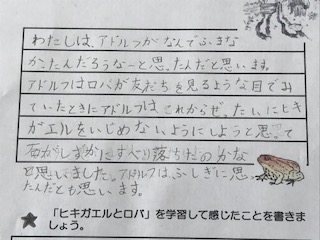 わたしは、アドルフがなんでふまな
かったんだろうなーと思ったんだと思います。
アドルフはロバが友だちを見るような目でみ
ていたときにアドルフは、これからぜったいにヒキ
ガエルをいじめないようにしようと思って
石がしずかにすべり落ちたのかな
と思いました。アドルフは、ふしぎに思っ
たんだとも思います。
★ 「ヒキガエルとロバ」を学習して感じたことを書きま
しょう。